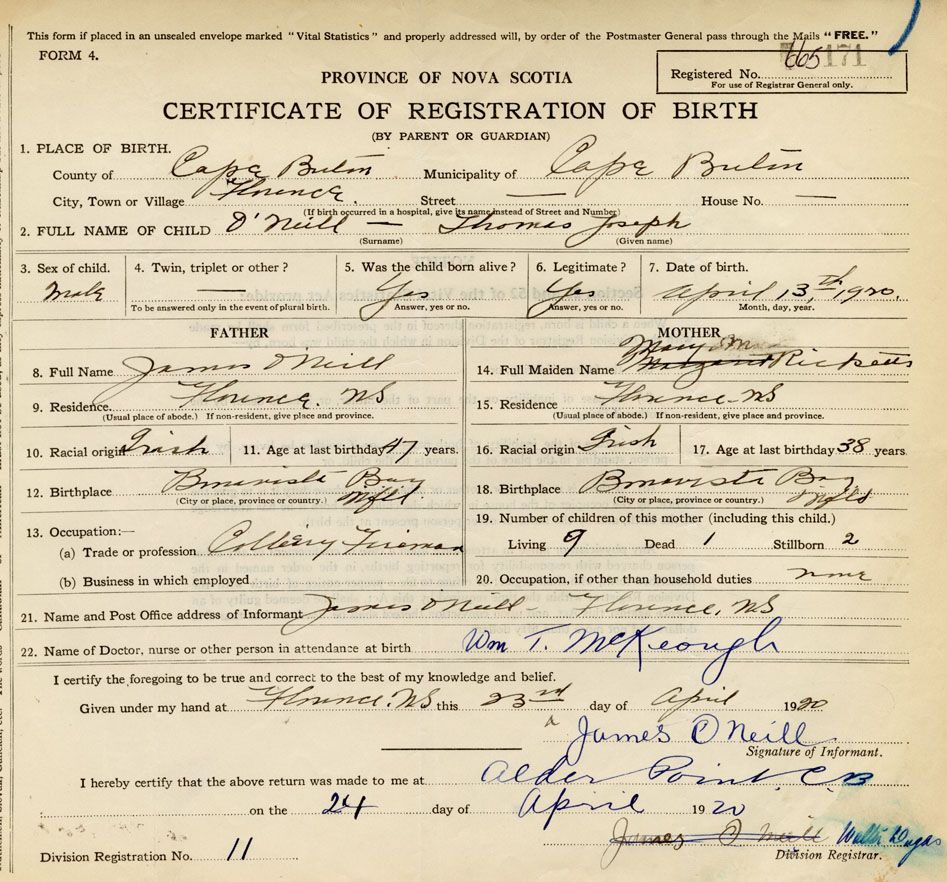 This form if placed in an unsealed envelope marked "Vital Statistics" and properly addressed will, by order of the Postmaster General pass through the Mails "FREE."
FORM 4.
PROVINCE OF NOVA SCOTIA
Registered No. 665 171
For use of Registrar General only.
CERTIFICATE OF REGISTRATION OF BIRTH
(BY PARENT OR GUARDIAN)
1. PLACE OF BIRTH.
County of Cape Breton Municipality of Cape Breton
City, Town or Village Florence. Street — House No. —
(If birth occurred in a hospital, give its name instead of Street and Number)
2. FULL NAME OF CHILD O'Neill — Thomas Joseph
(Surname) (Given name)
3. Sex of child. 4. Twin, triplet or other? 5. Was the child born alive? 6. Legitimate? 7. Date of birth.
Male — Yes Yes April 13th, 1920.
To be answered only in the event of plural birth. Answer, yes or no. Answer, yes or no. Month, day, year.
FATHER
8. Full Name James O'Neill
9. Residence. Florence, NS
(Usual place of abode.) If non-resident, give place and province.
10. Racial origin Irish 11. Age at last birthday 47 years.
12. Birthplace Bonavista Bay Nfld.
(City or place, province or country.)
13. Occupation:—
(a) Trade or profession Colliery Fireman
(b) Business in which employed
MOTHER
Mary
14. Full Maiden Name Margaret Ricketts
15. Residence Florence. NS
(Usual place of abode.) If non-resident, give place and province.
16. Racial origin Irish 17. Age at last birthday 38 years.
18. Birthplace Bonavista Bay Nfld
(City or place, province or country.)
19. Number of children of this mother (including this child.)
Living 9 Dead 1 Stillborn 2
20. Occupation, if other than household duties none
21. Name and Post Office address of Informant James O'Neill Florence, NS
22. Name of Doctor, nurse or other person in attendance at birth Wm T. McKeough
I certify the foregoing to be true and correct to the best of my knowledge and belief.
Given under my hand at Florence. NS this 23rd day of April 1920
James O'Neill
Signature of Informant.
I hereby certify that the above return was made to me at Alder Point, C.B
on the 24 day of April 1920
James O'Neill
Division Registration No. 11 Division Registrar.